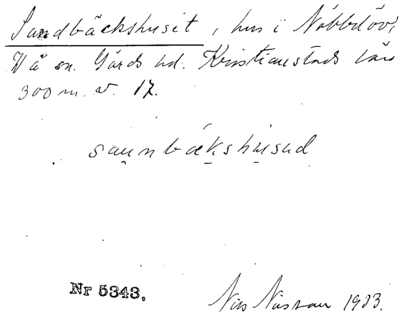 Sandbäckshuset, hus i Nöbbelöv,
Vä sn. Gärds hd. Kristianstads län
300 m. v. 17.
saunbákshusud
Nr 5343.
Nils 1933.